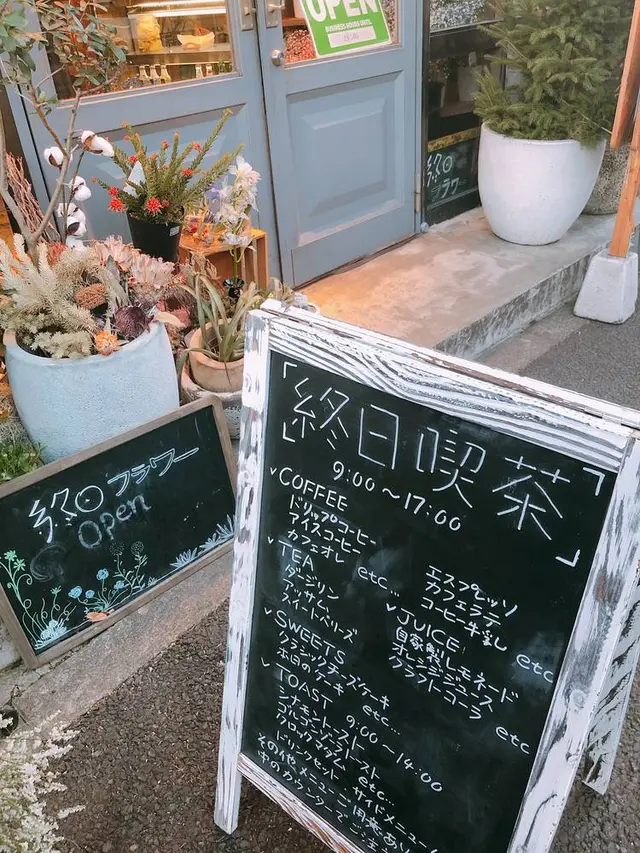 OPEN
BUSINESS HOURS UNTIL
終日フラワー
Open
終日
フラワー
「終日喫茶」
9:00〜17:00
✓COFFEE
ドリップコーヒー
アイスコーヒー
カフェオレ
エスプレッソ
カフェラテ
コーヒー牛乳
etc...
✓TEA
ダージリン
アッサム
スイートベリーズ
etc...
✓JUICE
自家製レモネード
オレンジジュース
クラフトコーラ
etc
✓SWEETS
クラシックチーズケーキ
本日のケーキ
etc...
✓TOAST 9:00〜14:00
シナモントースト
ゴルゴンゾーラトースト
クロックマダム
etc...
ドリンクセット サイドメニュー
その他メニューご用意あり
中のカウンターでご